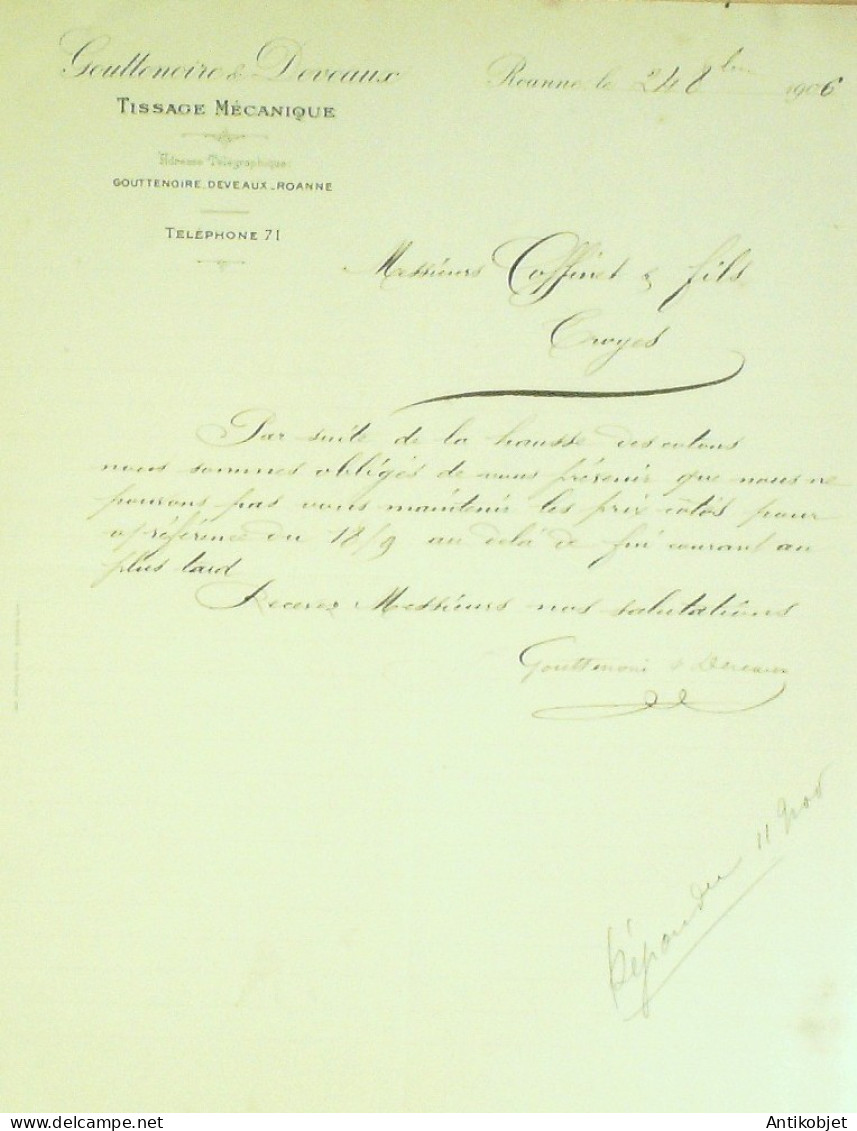 Gouttenoire & Deveaux
TISSAGE MÉCANIQUE
Adresse Télégraphique:
GOUTTENOIRE_DEVEAUX_ROANNE
TÉLÉPHONE 71
Roanne, le 24 8bre 1906
Messieurs Coffinet & fils
Troyes
Par suite de la hausse des cotons
nous sommes obligés de vous prévenir que nous ne
pouvons pas vous maintenir les prix cotés pour
 référence du 18/9 au delà de fin courant au
plus tard
Recevez Messieurs nos salutations
Gouttenoire & Deveaux
Répondu 11 Nov
Antikobjet